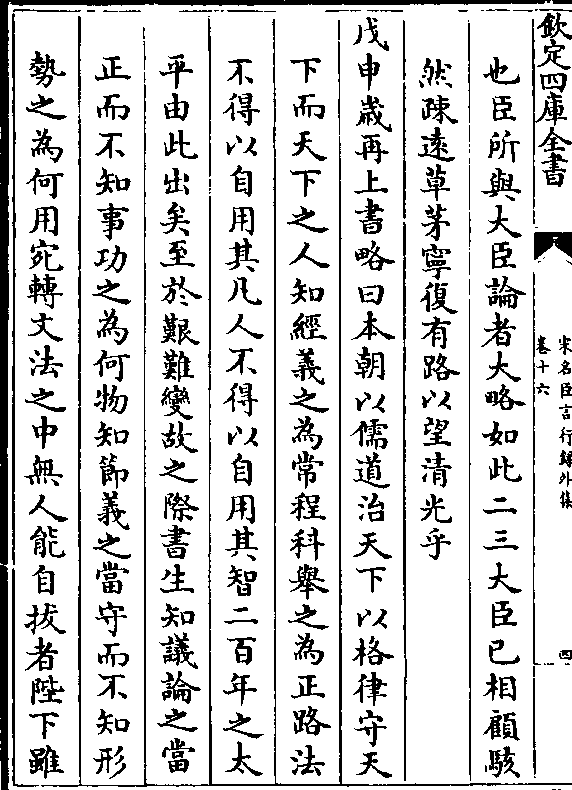 欽定四庫全書
宋名臣言行錄外集
卷十六
四
也臣所與大臣論者大略如此二三大臣已相顧駭
然疎遠草茅寧復有路以望清光乎
戊申歲再上書略曰本朝以儒道治天下以格律守天
下而天下之人知經義之為常程科舉之為正路法
不得以自用其凡人不得以自用其智二百年之太
平由此出矣至於艱難變故之際書生知議論之當
正而不知事功之為何物知節義之當守而不知形
勢之為何用宛轉文法之中無人能自拔者陛下雖